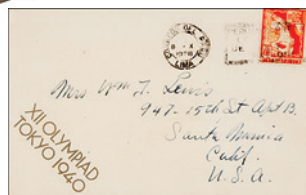 LIMA
Mrs Wm J. Lewis
947-15th St Apt B.
Santa Monica
Calif.
U. S. A.
XII OLYMPIAD
TOKYO 1940